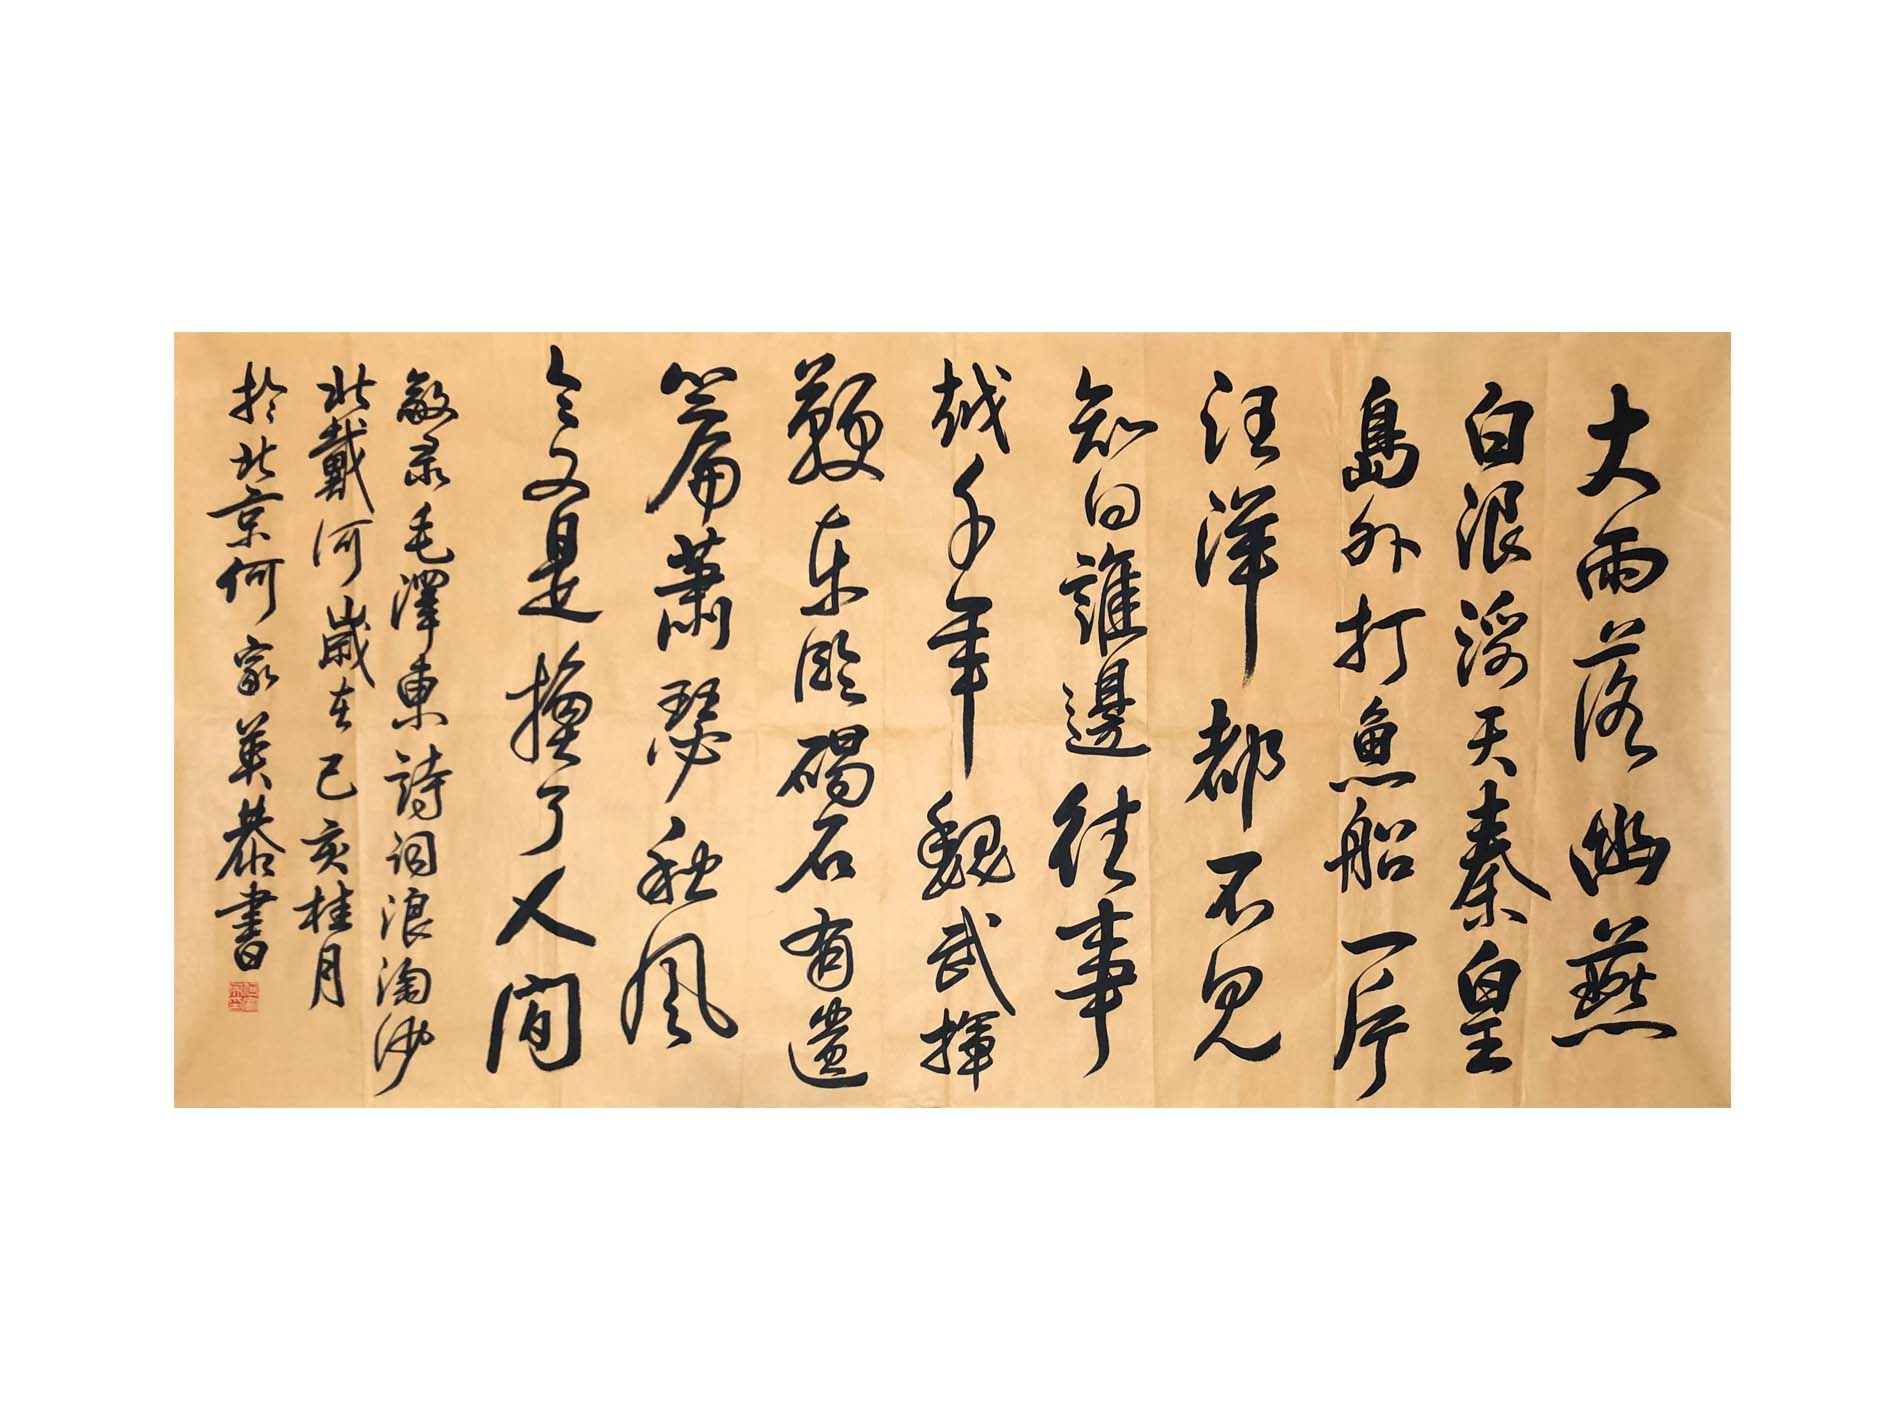 大雨落幽燕
白浪滔天秦皇
島外打魚船一片
汪洋都不見
知向誰邊往事
越千年魏武揮
鞭东臨碣石有遺
篇蕭瑟秋風
今又是換了人间
敬录毛澤東詩词浪淘沙
北戴河歲在己亥桂月
於北京何家英恭書